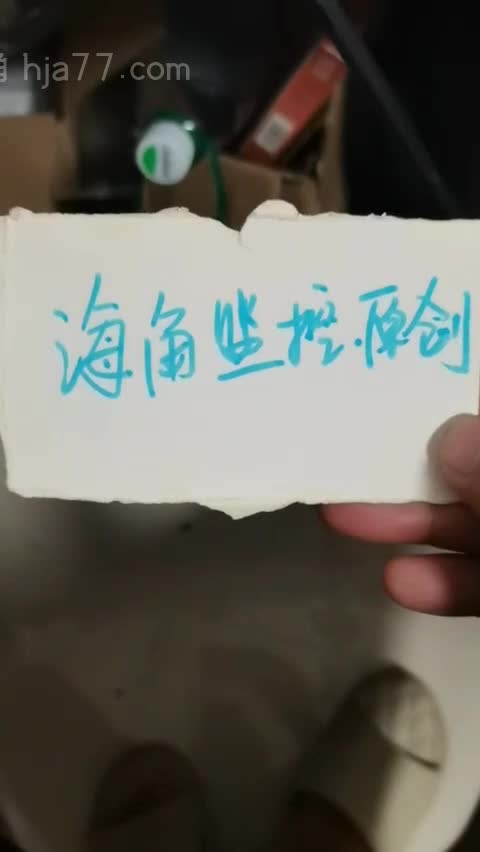 角 hja77.com
海角监控.原创